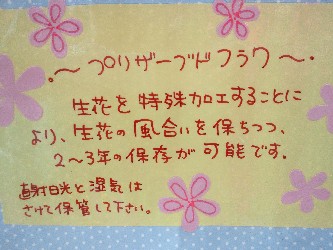 ～プリザーブドフラワ～
生花を特殊加工することに
より、生花の風合いを保ちつつ、
2～3年の保存が可能です。
直射日光と湿気は
さけて保管して下さい。